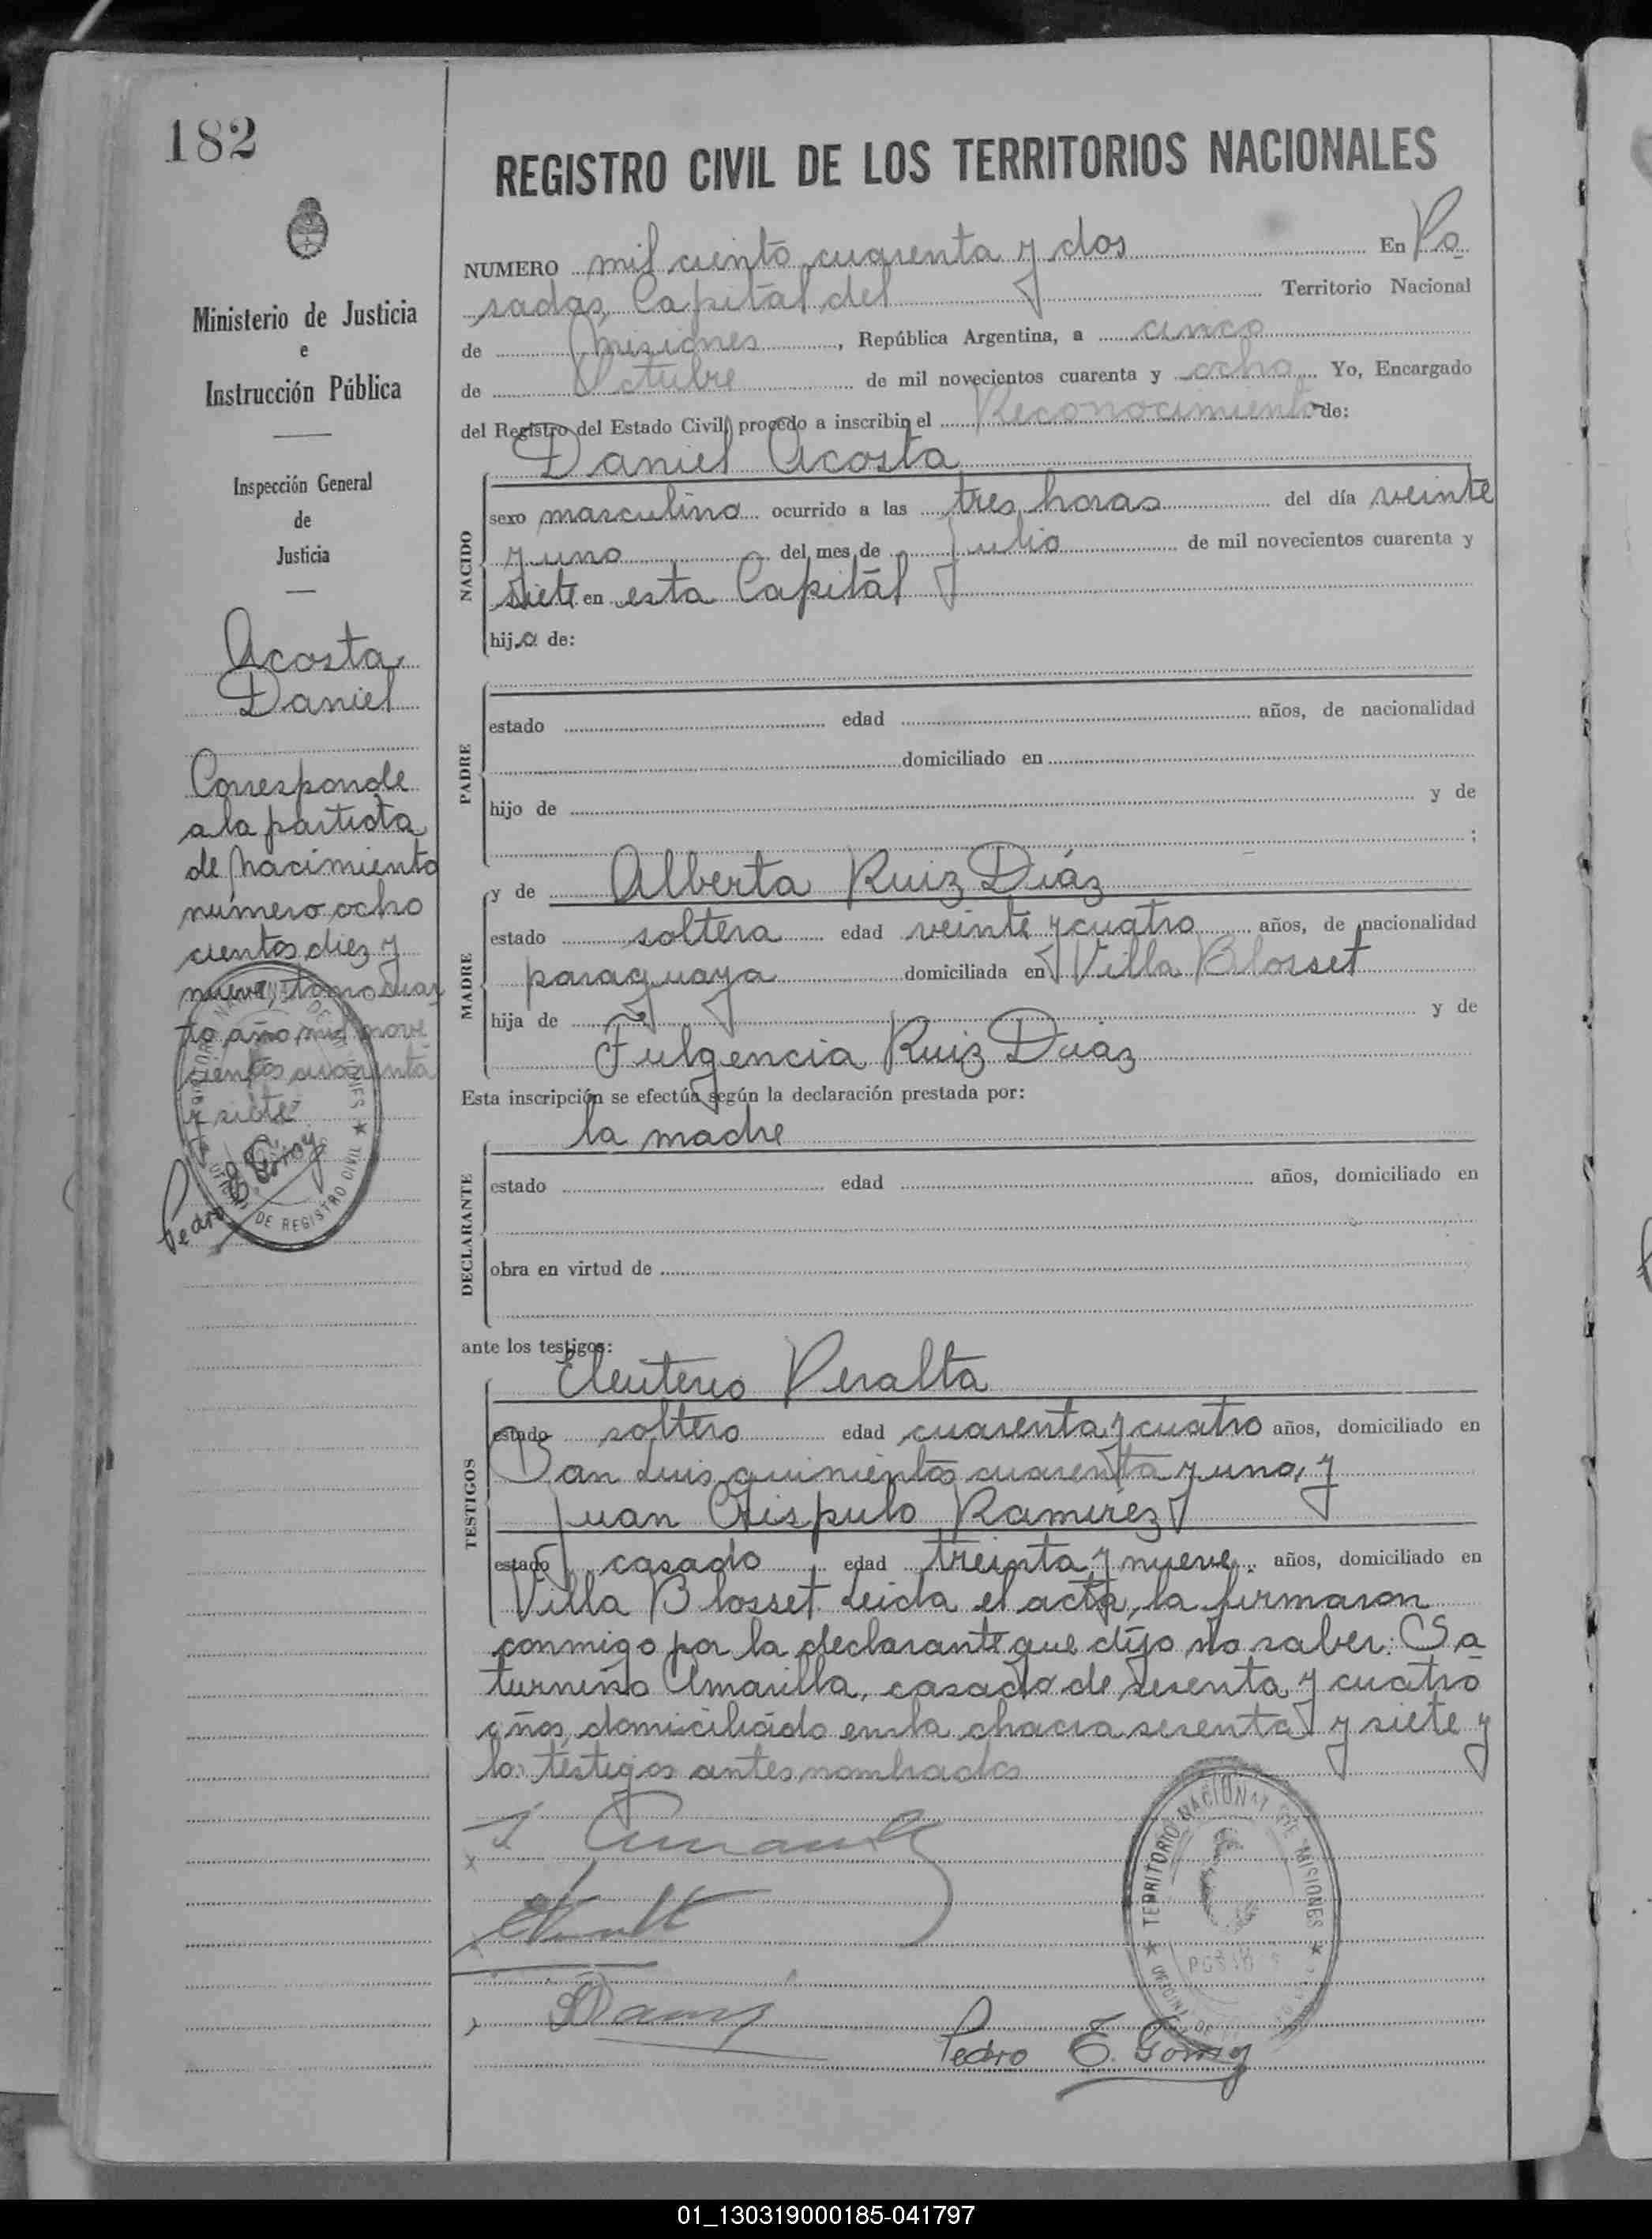 182
REGISTRO CIVIL DE LOS TERRITORIOS NACIONALES
Ministerio de Justicia
e
Instrucción Pública
Inspección General
de
Justicia
Acosta
Daniel
Corresponde
a la partida
de nacimiento
número ocho
cientos diez y
nueve, tomo cuar
to año mil nove
cientos cuarenta
y siete
Pedro E. Gomez
NUMERO mil ciento cuarenta y dos En Po
sadas, Capital del Territorio Nacional
de Misiones, República Argentina, a cinco
de Octubre de mil novecientos cuarenta y ocho Yo, Encargado
del Registro del Estado Civil, procedo a inscribir el Reconocimiento de:
Daniel Acosta
NACIDO
sexo masculino ocurrido a las tres horas del día veinte
y uno del mes de Julio de mil novecientos cuarenta y
siete en esta Capital
hijo de:
PADRE
estado edad años, de nacionalidad
domiciliado en
hijo de y de
;
MADRE
y de Alberta Ruiz Diáz
estado soltera edad veinte y cuatro años, de nacionalidad
paraguaya domiciliada en Villa Blosset
hija de y de
Fulgencia Ruiz Diaz
Esta inscripción se efectúa según la declaración prestada por:
la madre
DECLARANTE
estado edad años, domiciliado en
obra en virtud de
ante los testigos:
Eleuterio Peralta
TESTIGOS
estado soltero edad cuarenta y cuatro años, domiciliado en
San Luis quinientos cuarenta y uno, y
Juan Crispulo Ramirez
estado casado edad treinta y nueve años, domiciliado en
Villa Blosset Leida el acta, la firmaron
conmigo por la declarante que dijo no saber: Sa
turnino Amarilla, casado de sesenta y cuatro
años, domiciliado en la chacra sesenta y siete y
los testigos antes nombrados
TERRITORIO NACIONAL DE MISIONES
Pedro E. Gomez
01_130319000185-041797